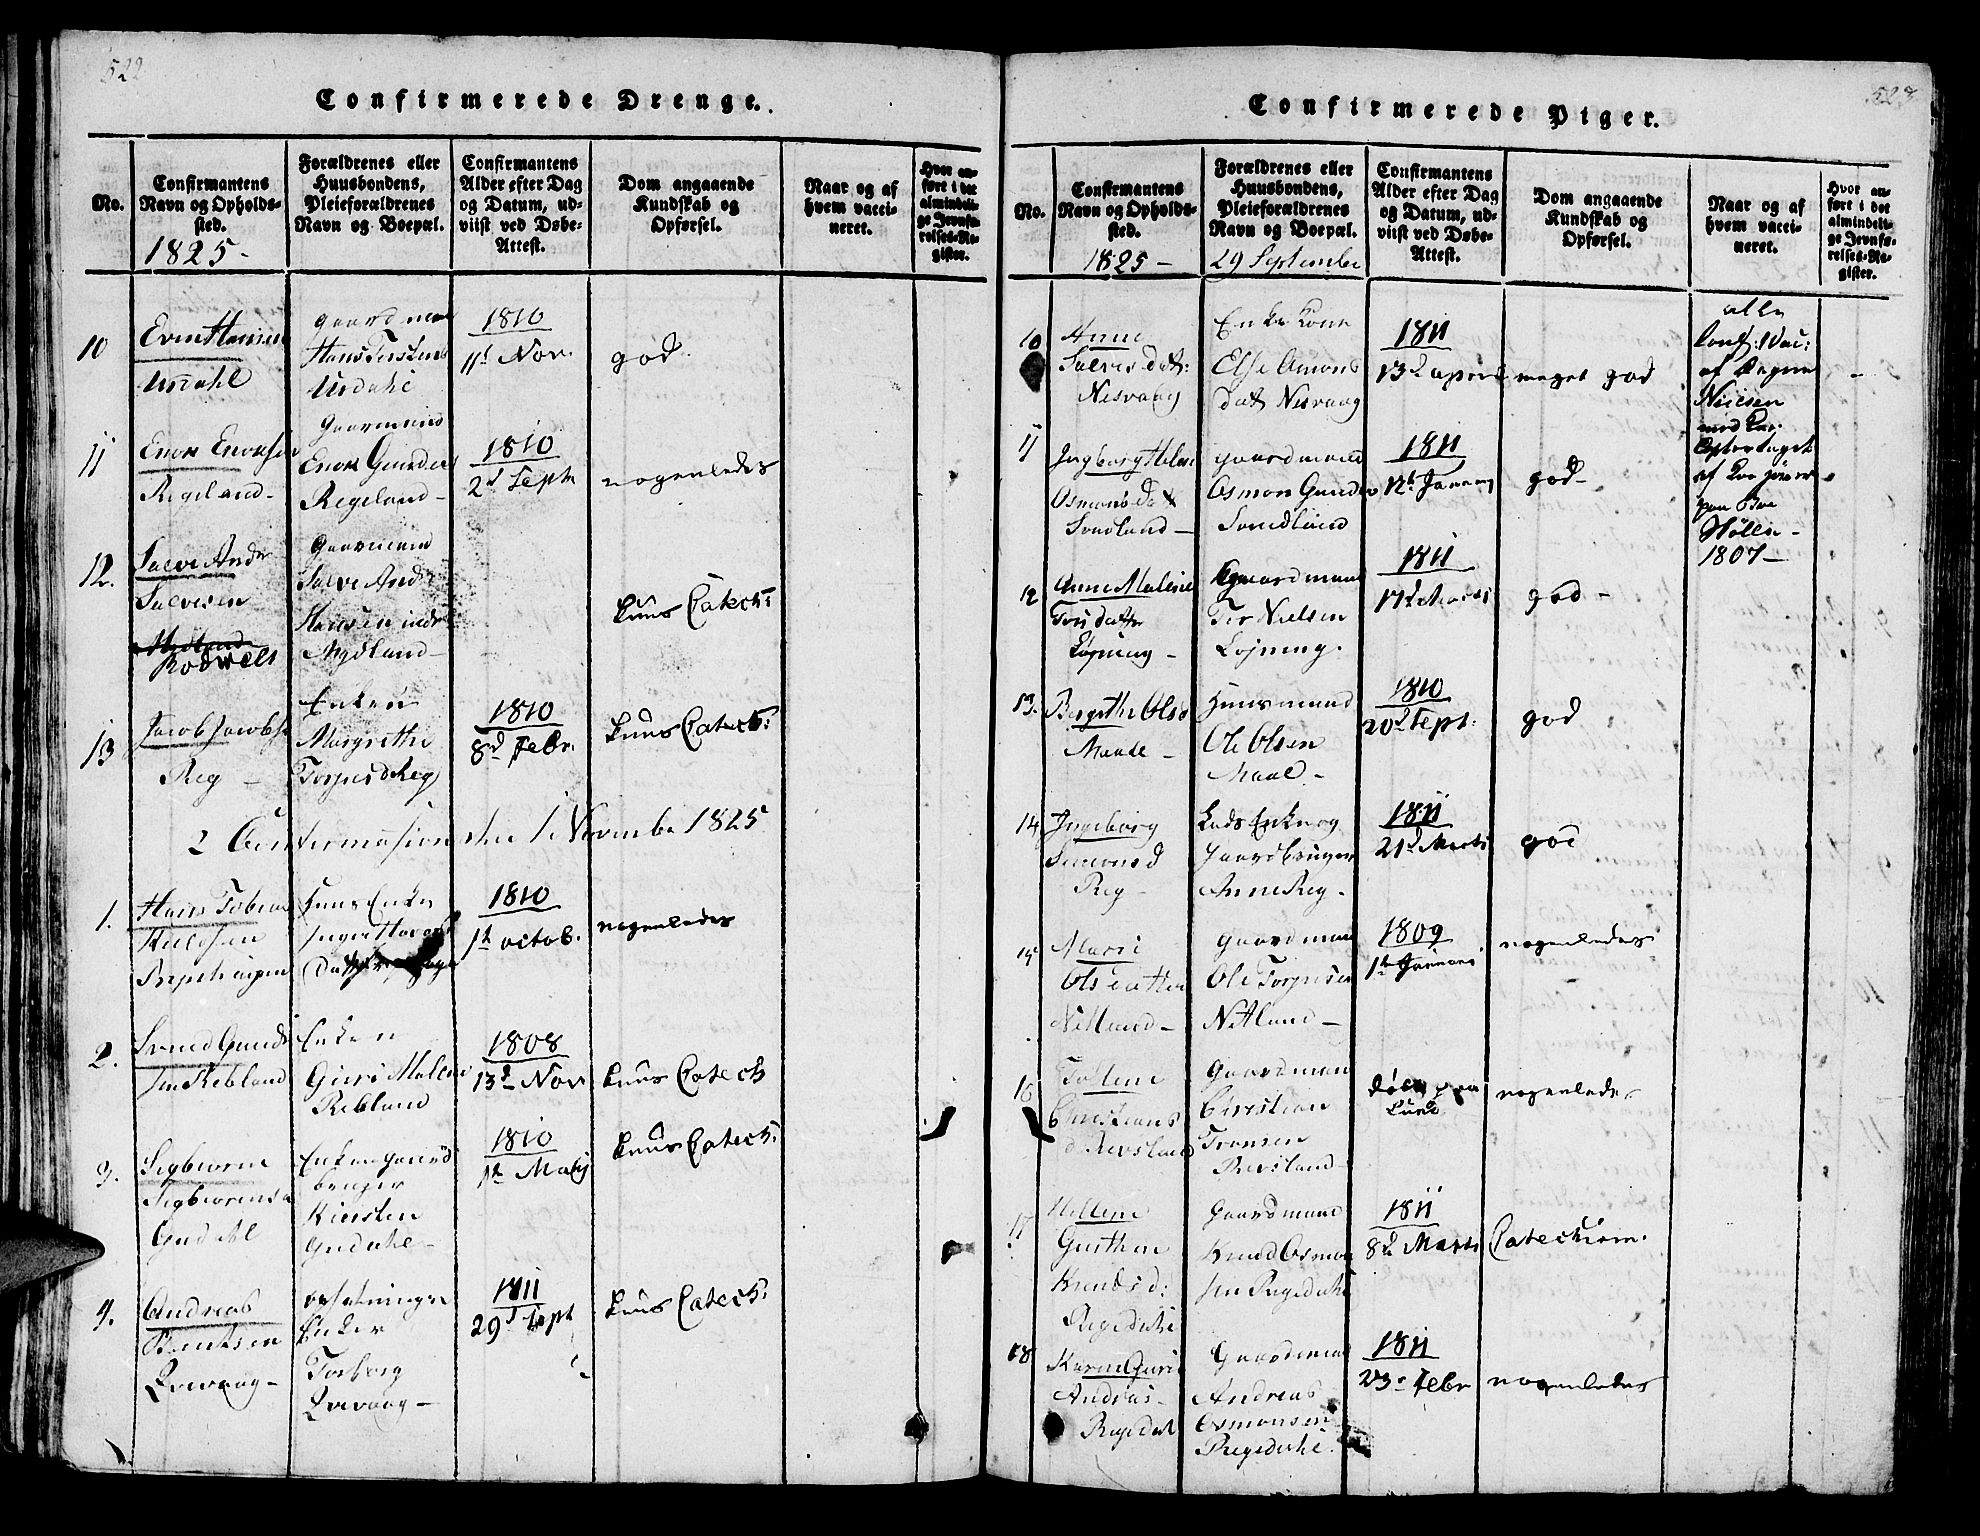 522
Confirmerede Drenge.
No.
Confirmantens
Navn og Opholds-
sted.
1825-
Forældrenes eller
Huusbondens,
Pleieforældrenes
Navn og Boepæl.
Confirmantens
Alder efter Dag
og Datum, ud-
viist ved Døbe-
Attest.
Dom angaaende
Kundskab og
Opførsel.
Naar og af
hvem vacci-
neret.
Hvor an-
ført i det
almindeli-
ge Jevnfø-
relses-Re-
gister.
10
Even Hansen
Urdahl
gaardman
Hans
Urdahl
1810
11t Nov.
god
11
Enok Enoksen
Regeland-
Gaarmand
Enok Gunders
Regeland-
1810
2d Sept
nogenledes
12.
Salve Andr
Salvesen
Rodvelt
Gaarmand
Salve Andr
Hansen
Mydland-
Kuns Catech:
13
Jacob Jacobse
Reg -
Enken
Margrethe
Torgersd Reg
1810
8d Febr.
Kuns Catech:
2 Confirmasion den 1 November 1825
1.
Hans Tobias
Huus Enke
Inger
1810
1t octob.
nogenledes
2.
Svend Gunder
sen Rebland
Enken
Guri Malene
Rebland
1808
13d Nov
Kuns Catech
3.
Sigbiørn
Sigbiørensen
Gudahl
Enke gaard
bruger
Kiersten
Gudahl-
1810
1t Maij
Kuns Catech:
4.
Andreas
Bentsen
opsetninges
Enken
Torborg
1811
29d Sept
Kuns Catech:
523
Confirmerede Piger.
No.
Confirmantens
Navn og Opholds-
sted.
1825 -
Forældrenes eller
Huusbondens,
Pleieforældrenes
Navn og Boepæl.
29 September
Confirmantens
Alder efter Dag
og Datum, ud-
viist ved Døbe-
Attest.
Dom angaaende
Kundskab og
Opførsel.
Naar og af
hvem vacci-
neret.
Hvor an-
ført i det
almindeli-
ge Jevnfø-
relses-Re-
gister.
10
Anne
Salves dat:
Nesvaag
Enke Kone
Else Amons
dat Nesvaag
1811
13d April
meget god
alle
Conf: Vac:
af Degnen
Nielsen
11
Ingborg Helene
Osmons dat
Svadland -
gaardmand
Osmon Gunders
Svadland
1811
12t Januar
god-
Stølle-
1807-
12
Anne Malene
Torsdatter
Løjning -
gaardmand
Tor Nielsen
Løjning.
1811
17d Marts
god -
13.
Bergithe Olsd
Maale -
Huusmand
Ole Olsen
Maal -
1810
20d Sept.
god
14
Ingeborg
Simonsd
Reg -
Lads Enke og
Gaardbruger
Anne Reg -
1811
21d Marts
god
15
Marie
Olsdatter
Netland -
Gaardmand
Ole Torgersen
Netland -
1809
1t Januari
nogenledes
16
Tolene
Christians
d Revsland
Gaardmand
Christian
Tronsen
Revsland-
døbt paa
Lund
nogenledes
17
Hellene
Gurthine
Knudsd:
Regedahl
Gaardmand
Knud Osmon
sen Regedahl
1811
8d Marts
Catechism.
18
Karen Gurie
Andreas-
Regedal
Gaardman
Andreas
Osmonsen
Regedahl.
1811
23- Febr
nogenledes